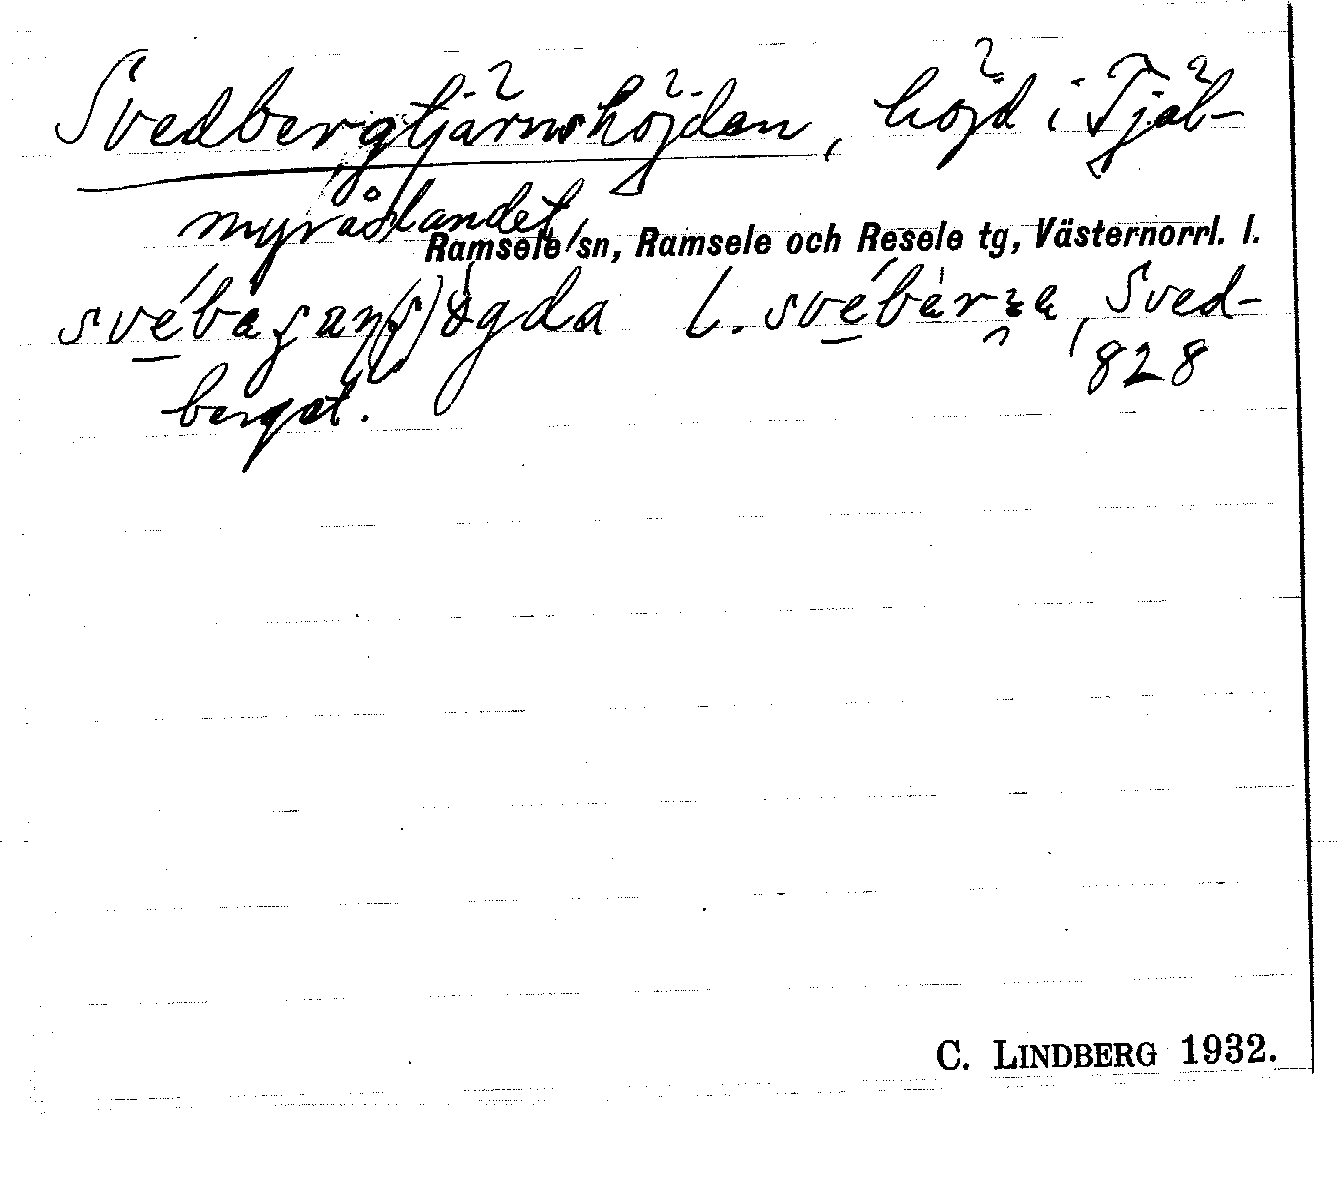 Svedbergtjärnshöjden, höjd i Tjäl-
myråslandet,
Ramsele sn, Ramsele och Resele tg, Västernorrl. l.
l. Sved-
828
berget.
C. LINDBERG 1932.